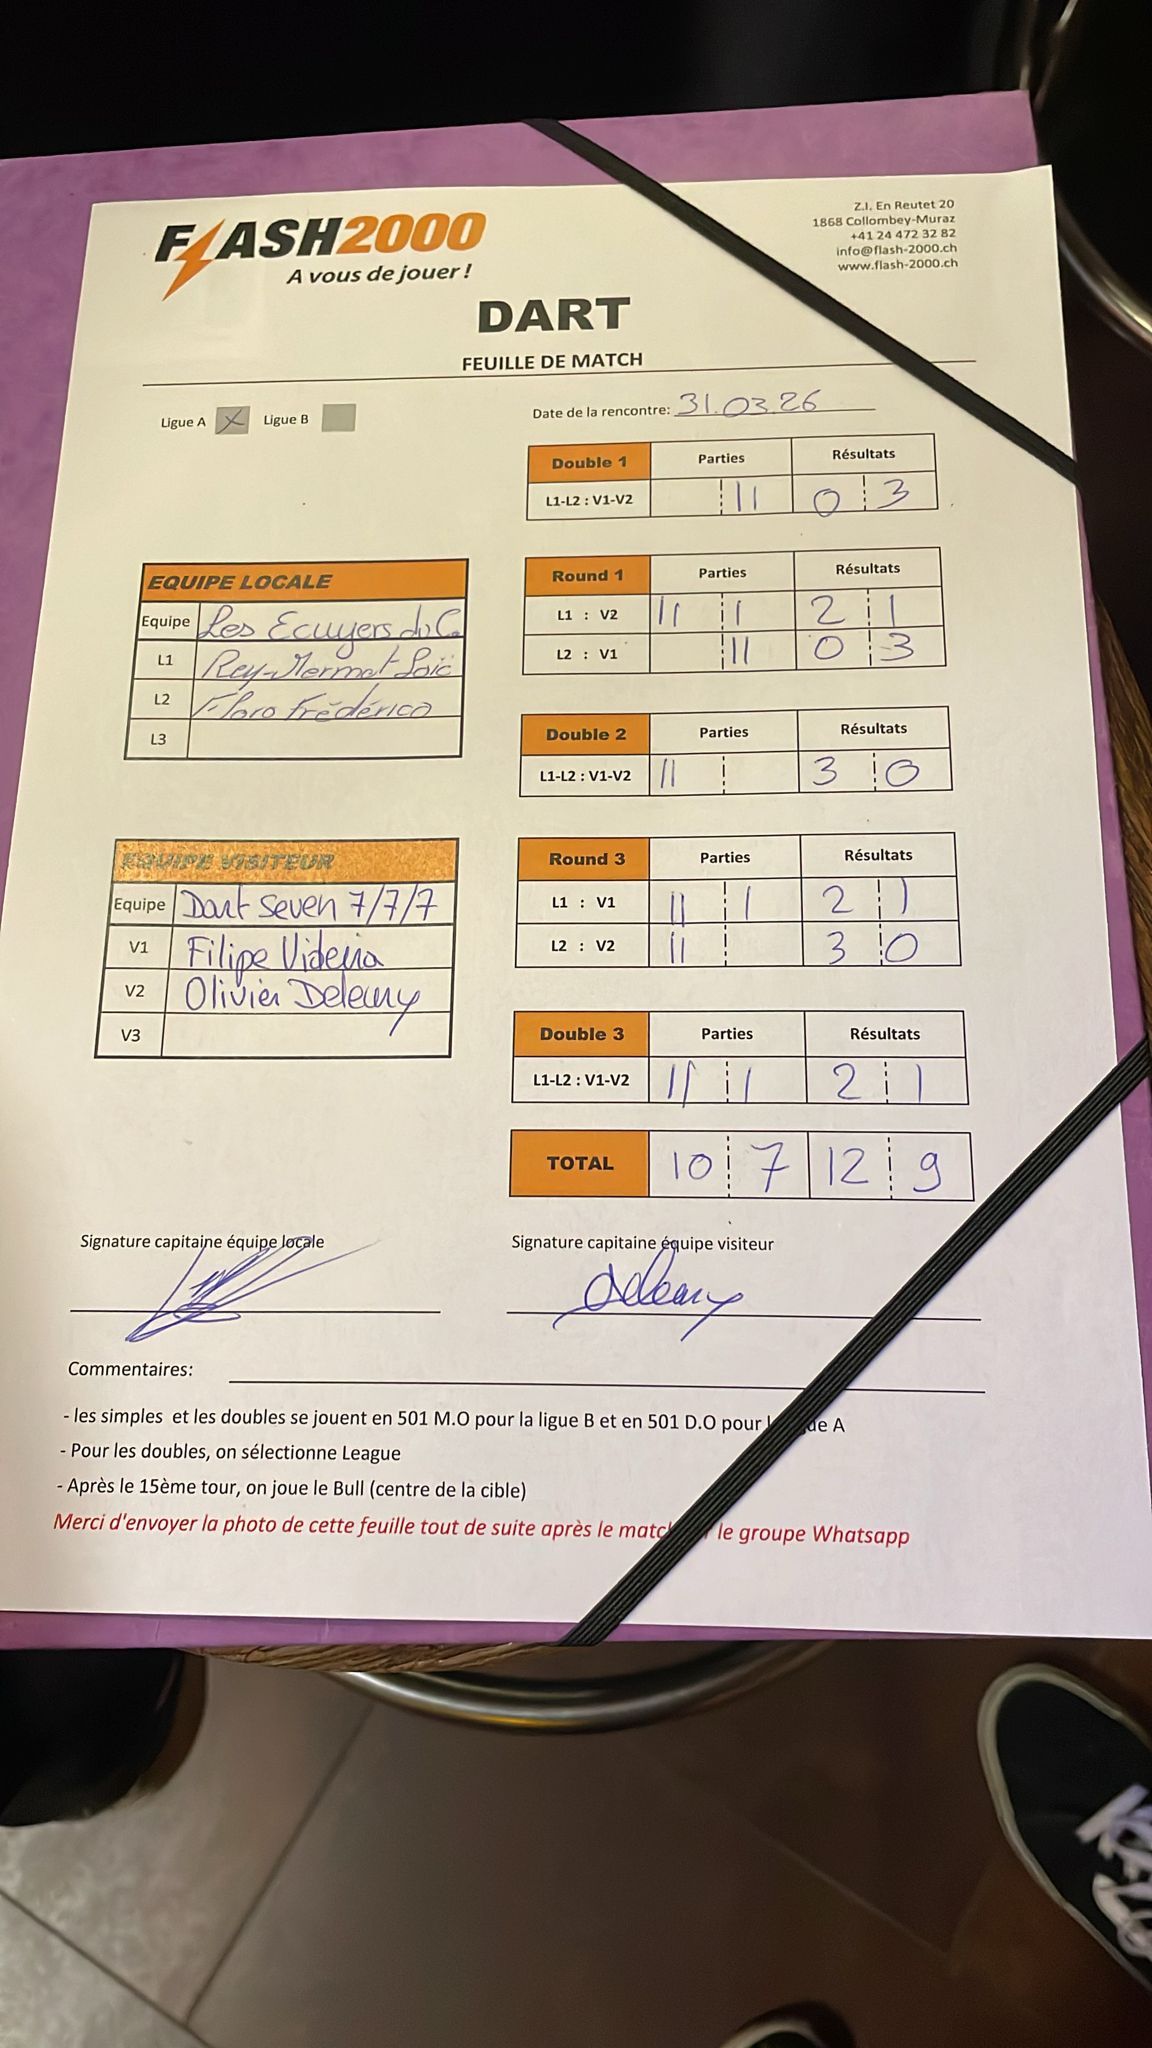 FLASH2000
A vous de jouer !
Z.I. En Reutet 20
1868 Collombey-Muraz
+41 24 472 32 82
info@flash-2000.ch
www.flash-2000.ch
DART
FEUILLE DE MATCH
Ligue A X Ligue B
Date de la rencontre: 31.03.26
Double 1 Parties Résultats
L1-L2 : V1-V2 || 0 3
EQUIPE LOCALE
Equipe Les Ecuyers du C.
L1 Rey-Mermet Loïc
L2 Frédérico
L3
Round 1 Parties Résultats
L1 : V2 || | 2 1
L2 : V1 || 0 3
Double 2 Parties Résultats
L1-L2 : V1-V2 || 3 0
EQUIPE VISITEUR
Equipe Dart Seven 7/7/7
V1 Filipe
V2 Olivier
V3
Round 3 Parties Résultats
L1 : V1 || | 2 1
L2 : V2 || 3 0
Double 3 Parties Résultats
L1-L2 : V1-V2 || | 2 1
TOTAL 10 7 12 9
Signature capitaine équipe locale
Signature capitaine équipe visiteur
Commentaires:
- les simples et les doubles se jouent en 501 M.O pour la ligue B et en 501 D.O pour A
- Pour les doubles, on sélectionne League
- Après le 15ème tour, on joue le Bull (centre de la cible)
Merci d'envoyer la photo de cette feuille tout de suite après le le groupe Whatsapp